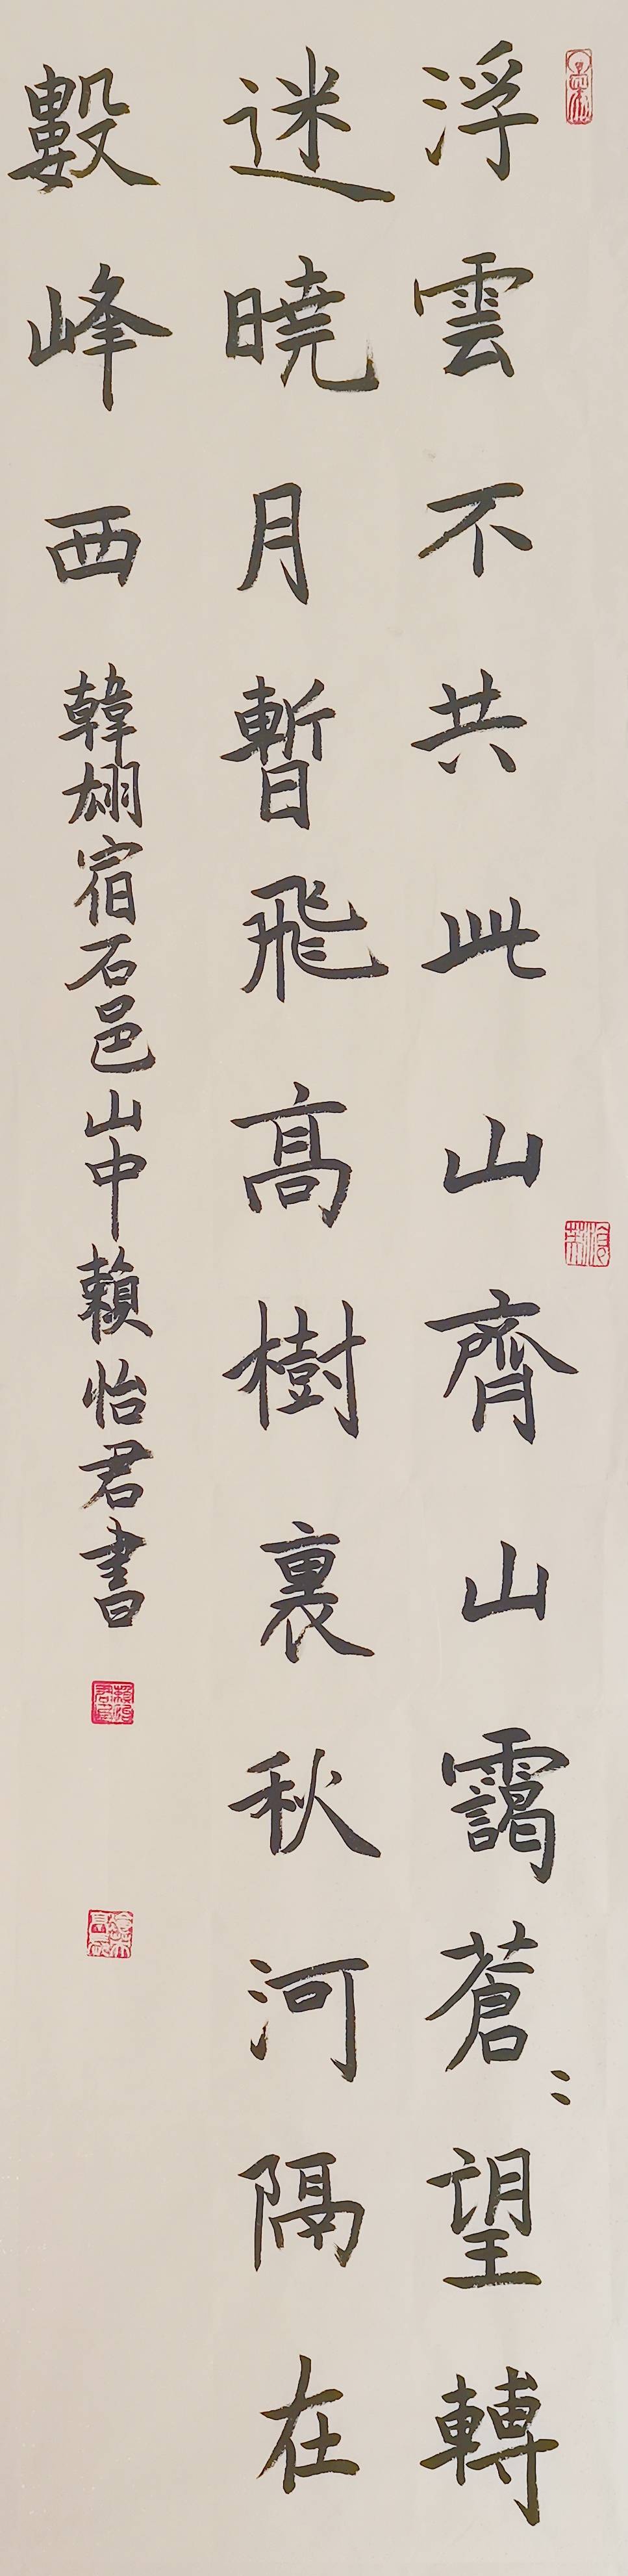 浮雲不共此山齊山靄蒼〻望轉
迷曉月暫飛高樹裏秋河隔在
數峰西 韓翃宿石邑山中賴怡君書